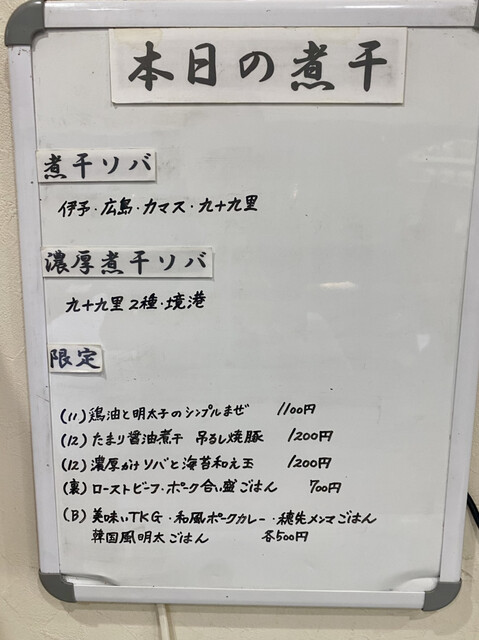 本日の煮干
煮干ソバ
伊予・広島・カマス・九十九里
濃厚煮干ソバ
九十九里2種・境港
限定
(11) 鶏油と明太子のシンプルまぜ 1100円
(12) たまり醤油煮干 吊るし焼豚 1200円
(12) 濃厚かけソバと海苔和え玉 1200円
(裏) ローストビーフ・ポーク合い盛ごはん 700円
(B) 美味いTKG・和風ポークカレー・穂先メンマごはん
韓国風明太ごはん 各500円